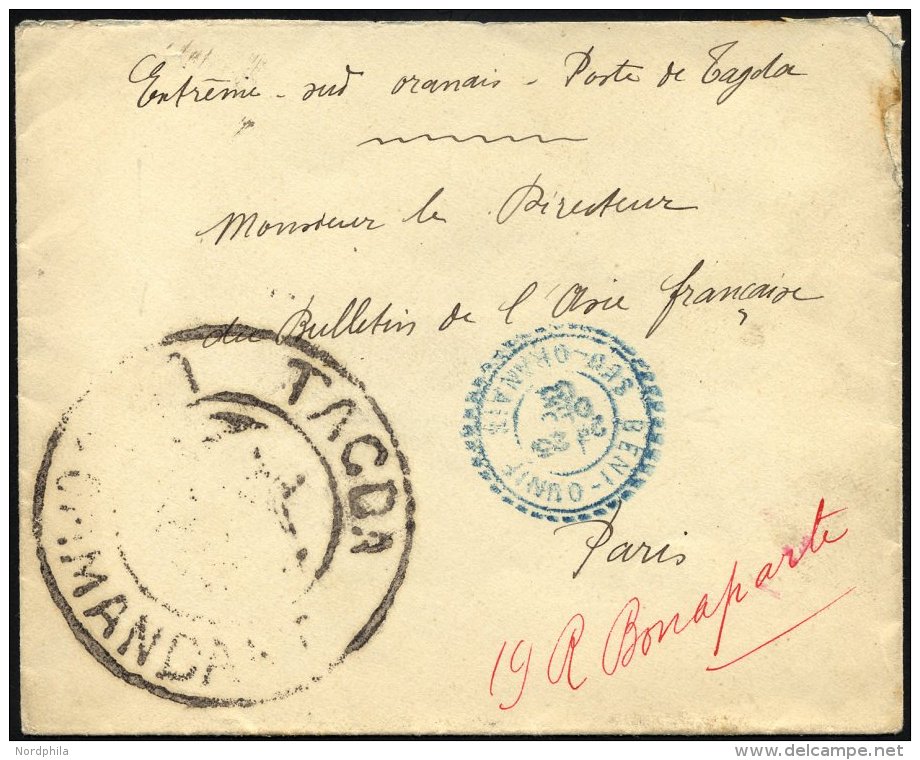 Extrême - sud oranais - Poste de Tagda
Monsieur le Directeur
du Bulletin de l'Asie française
TAGDA
COMMANDANT
BENI-OUNIF
SUD-ORANAIS
Paris
19 R Bonaparte
Nordphila
www.delcampe.net